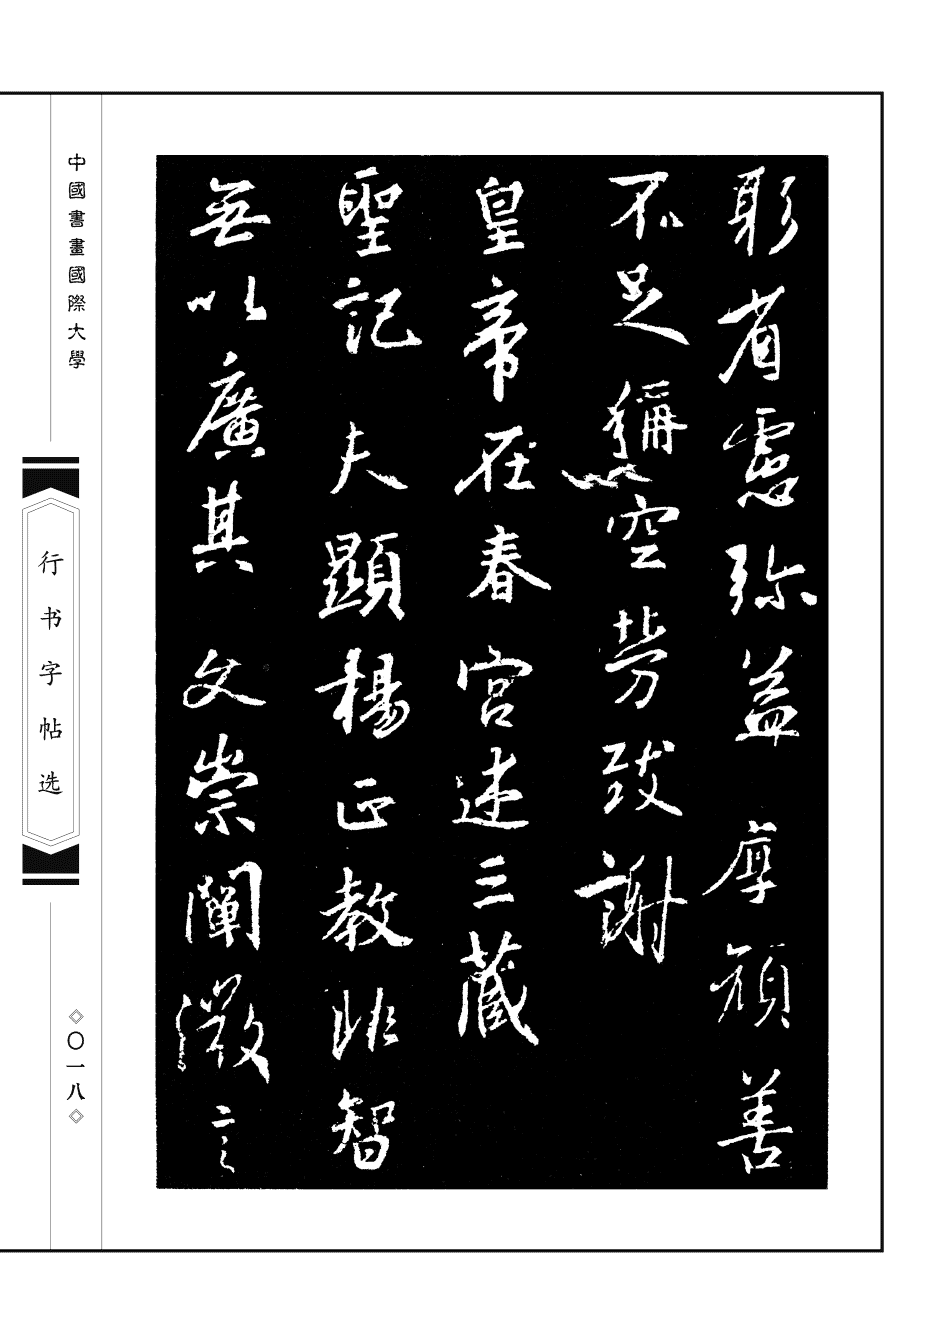 躬省慮弥益厚顏善
不足稱空勞致謝
皇帝在春宮述三藏
聖記夫顯揚正教非智
無以廣其文崇闡微言
中國書畫國際大學
行书字帖选
〇一八